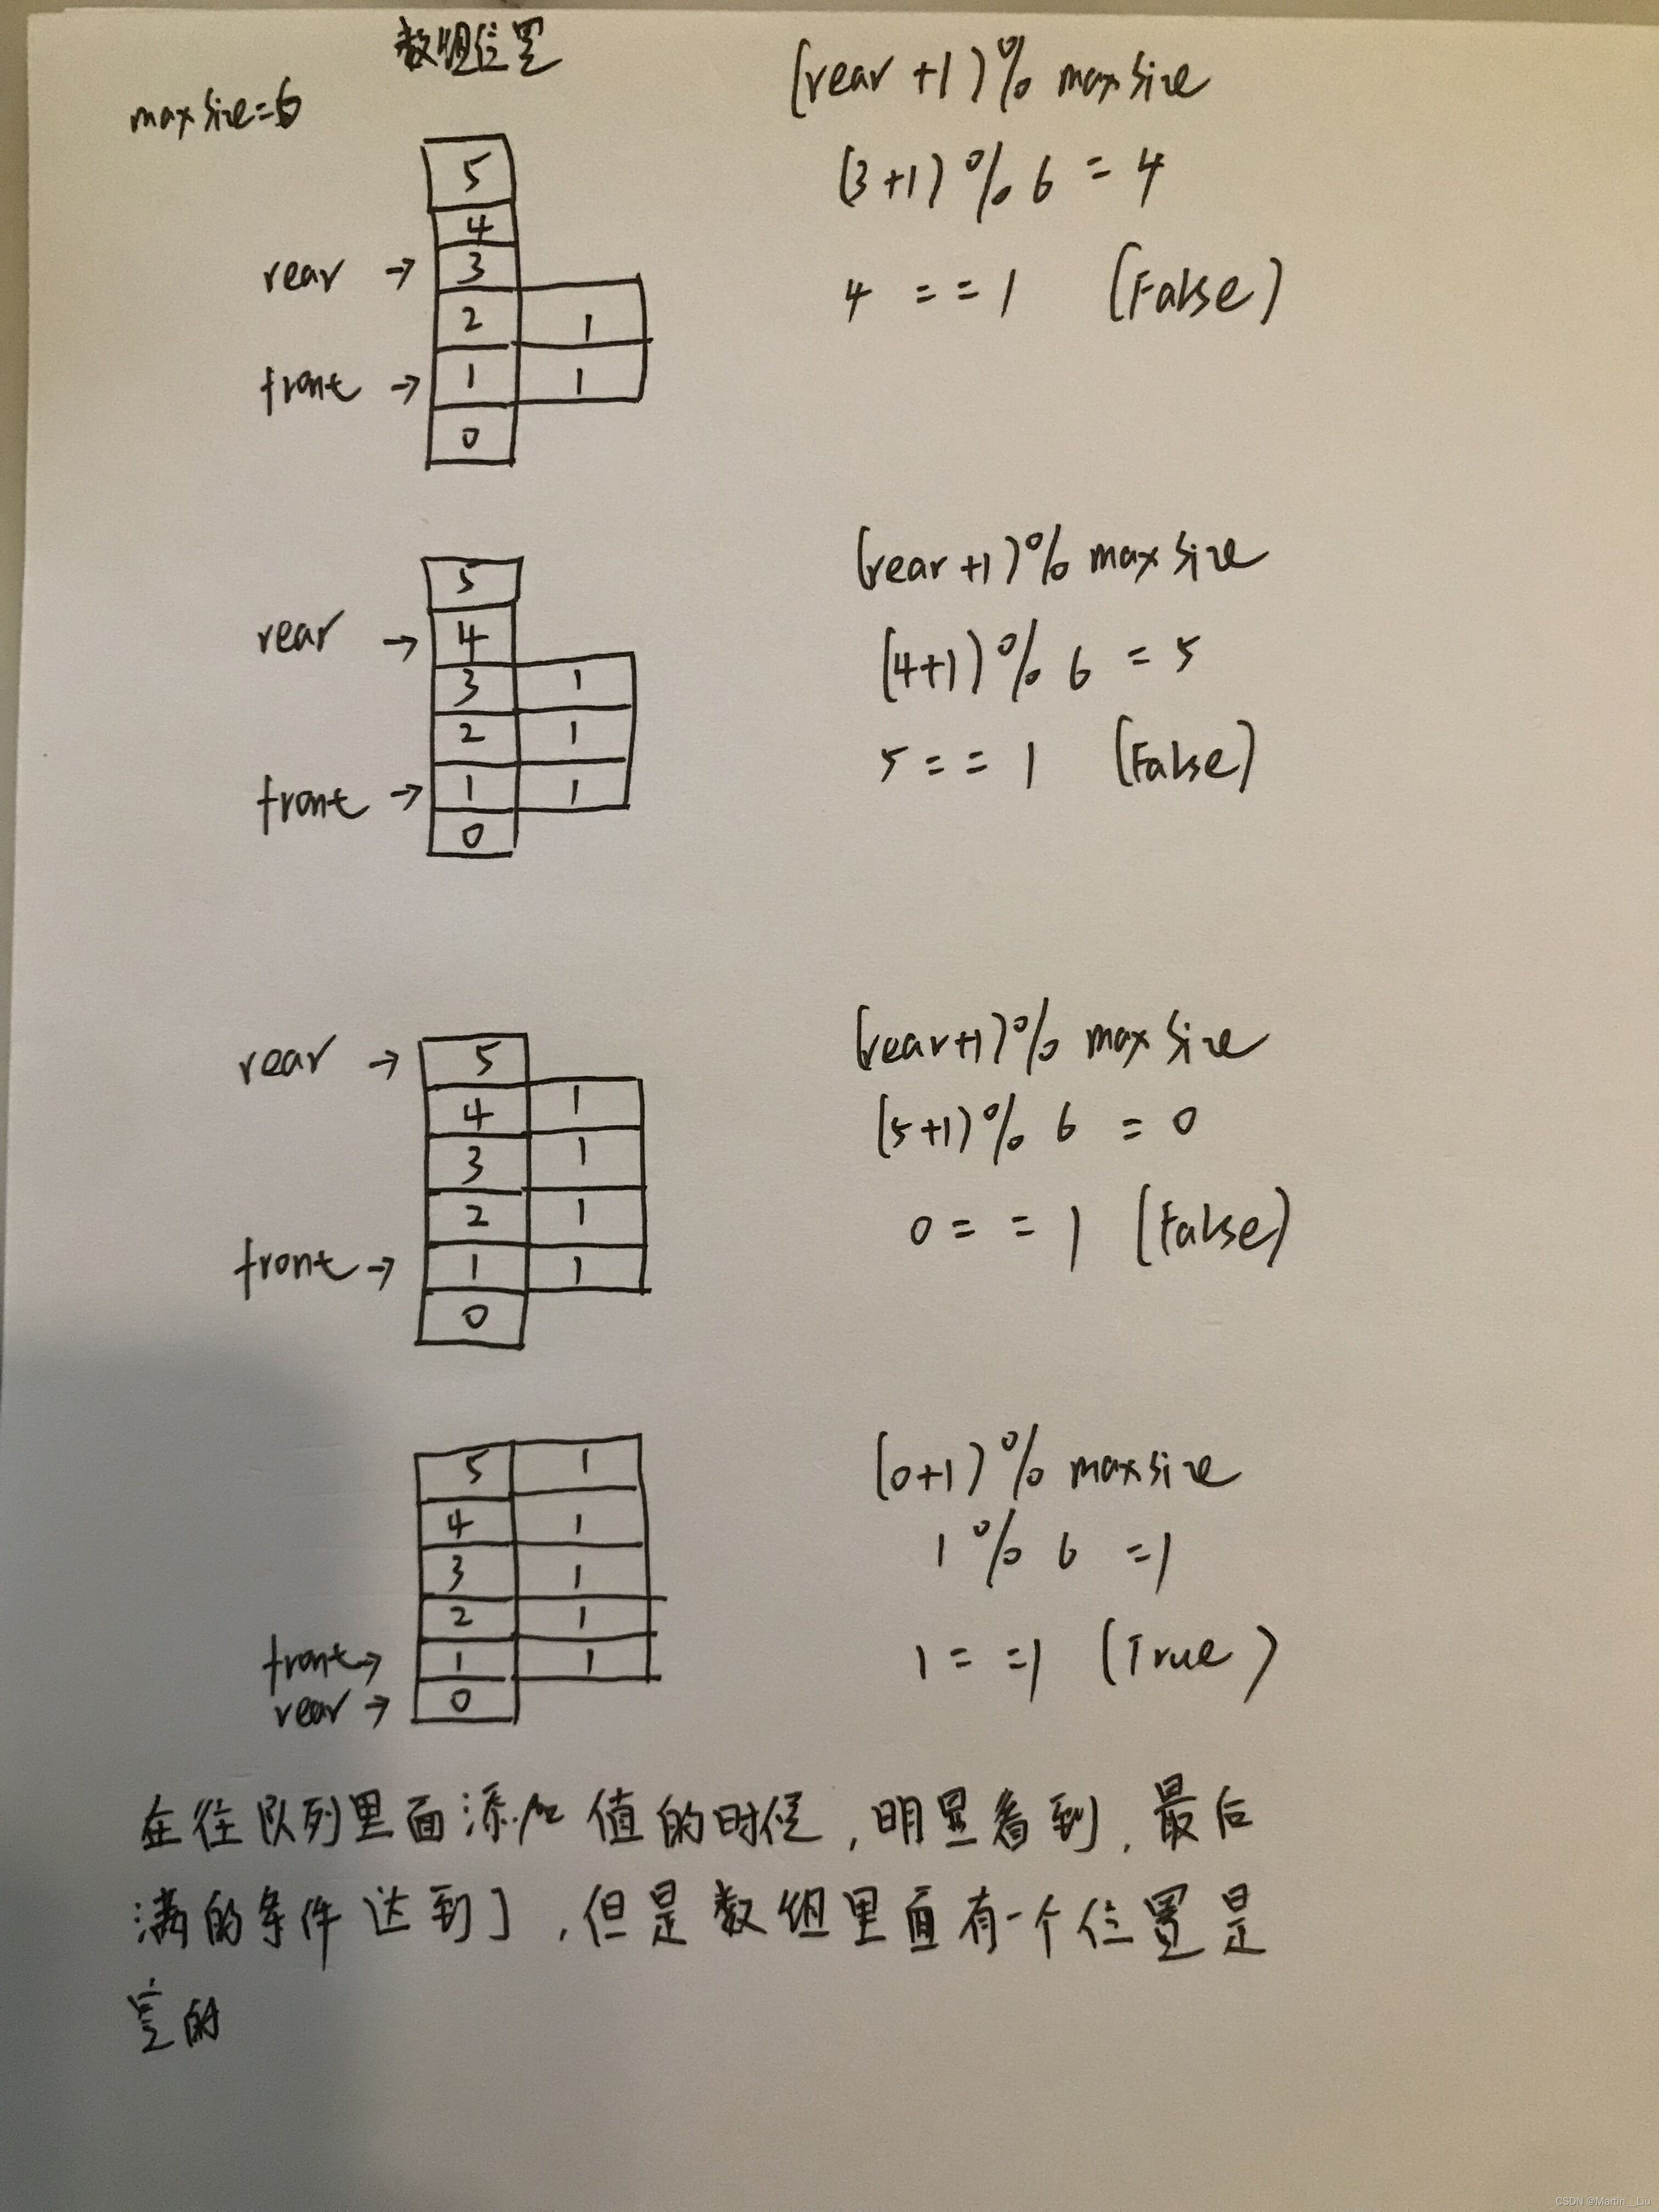 数组位置
maxsize=6
(rear+1)% maxsize
5
(3+1)% 6 = 4
4
rear → 3
4 == 1 (False)
2 1
front → 1 1
0
(rear+1)% maxsize
5
rear → 4
(4+1)% 6 = 5
3 1
2 1
5 == 1 (False)
front → 1 1
0
(rear+1)% maxsize
rear → 5
4 1
(5+1)% 6 = 0
3 1
2 1
0 == 1 (False)
front → 1 1
0
(0+1)% maxsize
5 1
4 1
1 % 6 =1
3 1
2 1
front → 1 1
1 == 1 (True)
rear → 0
在往队列里面添加值的时候,明显看到,最后
满的条件达到了,但是数组里面有一个位置是
空的
CSDN @Martin__Liu